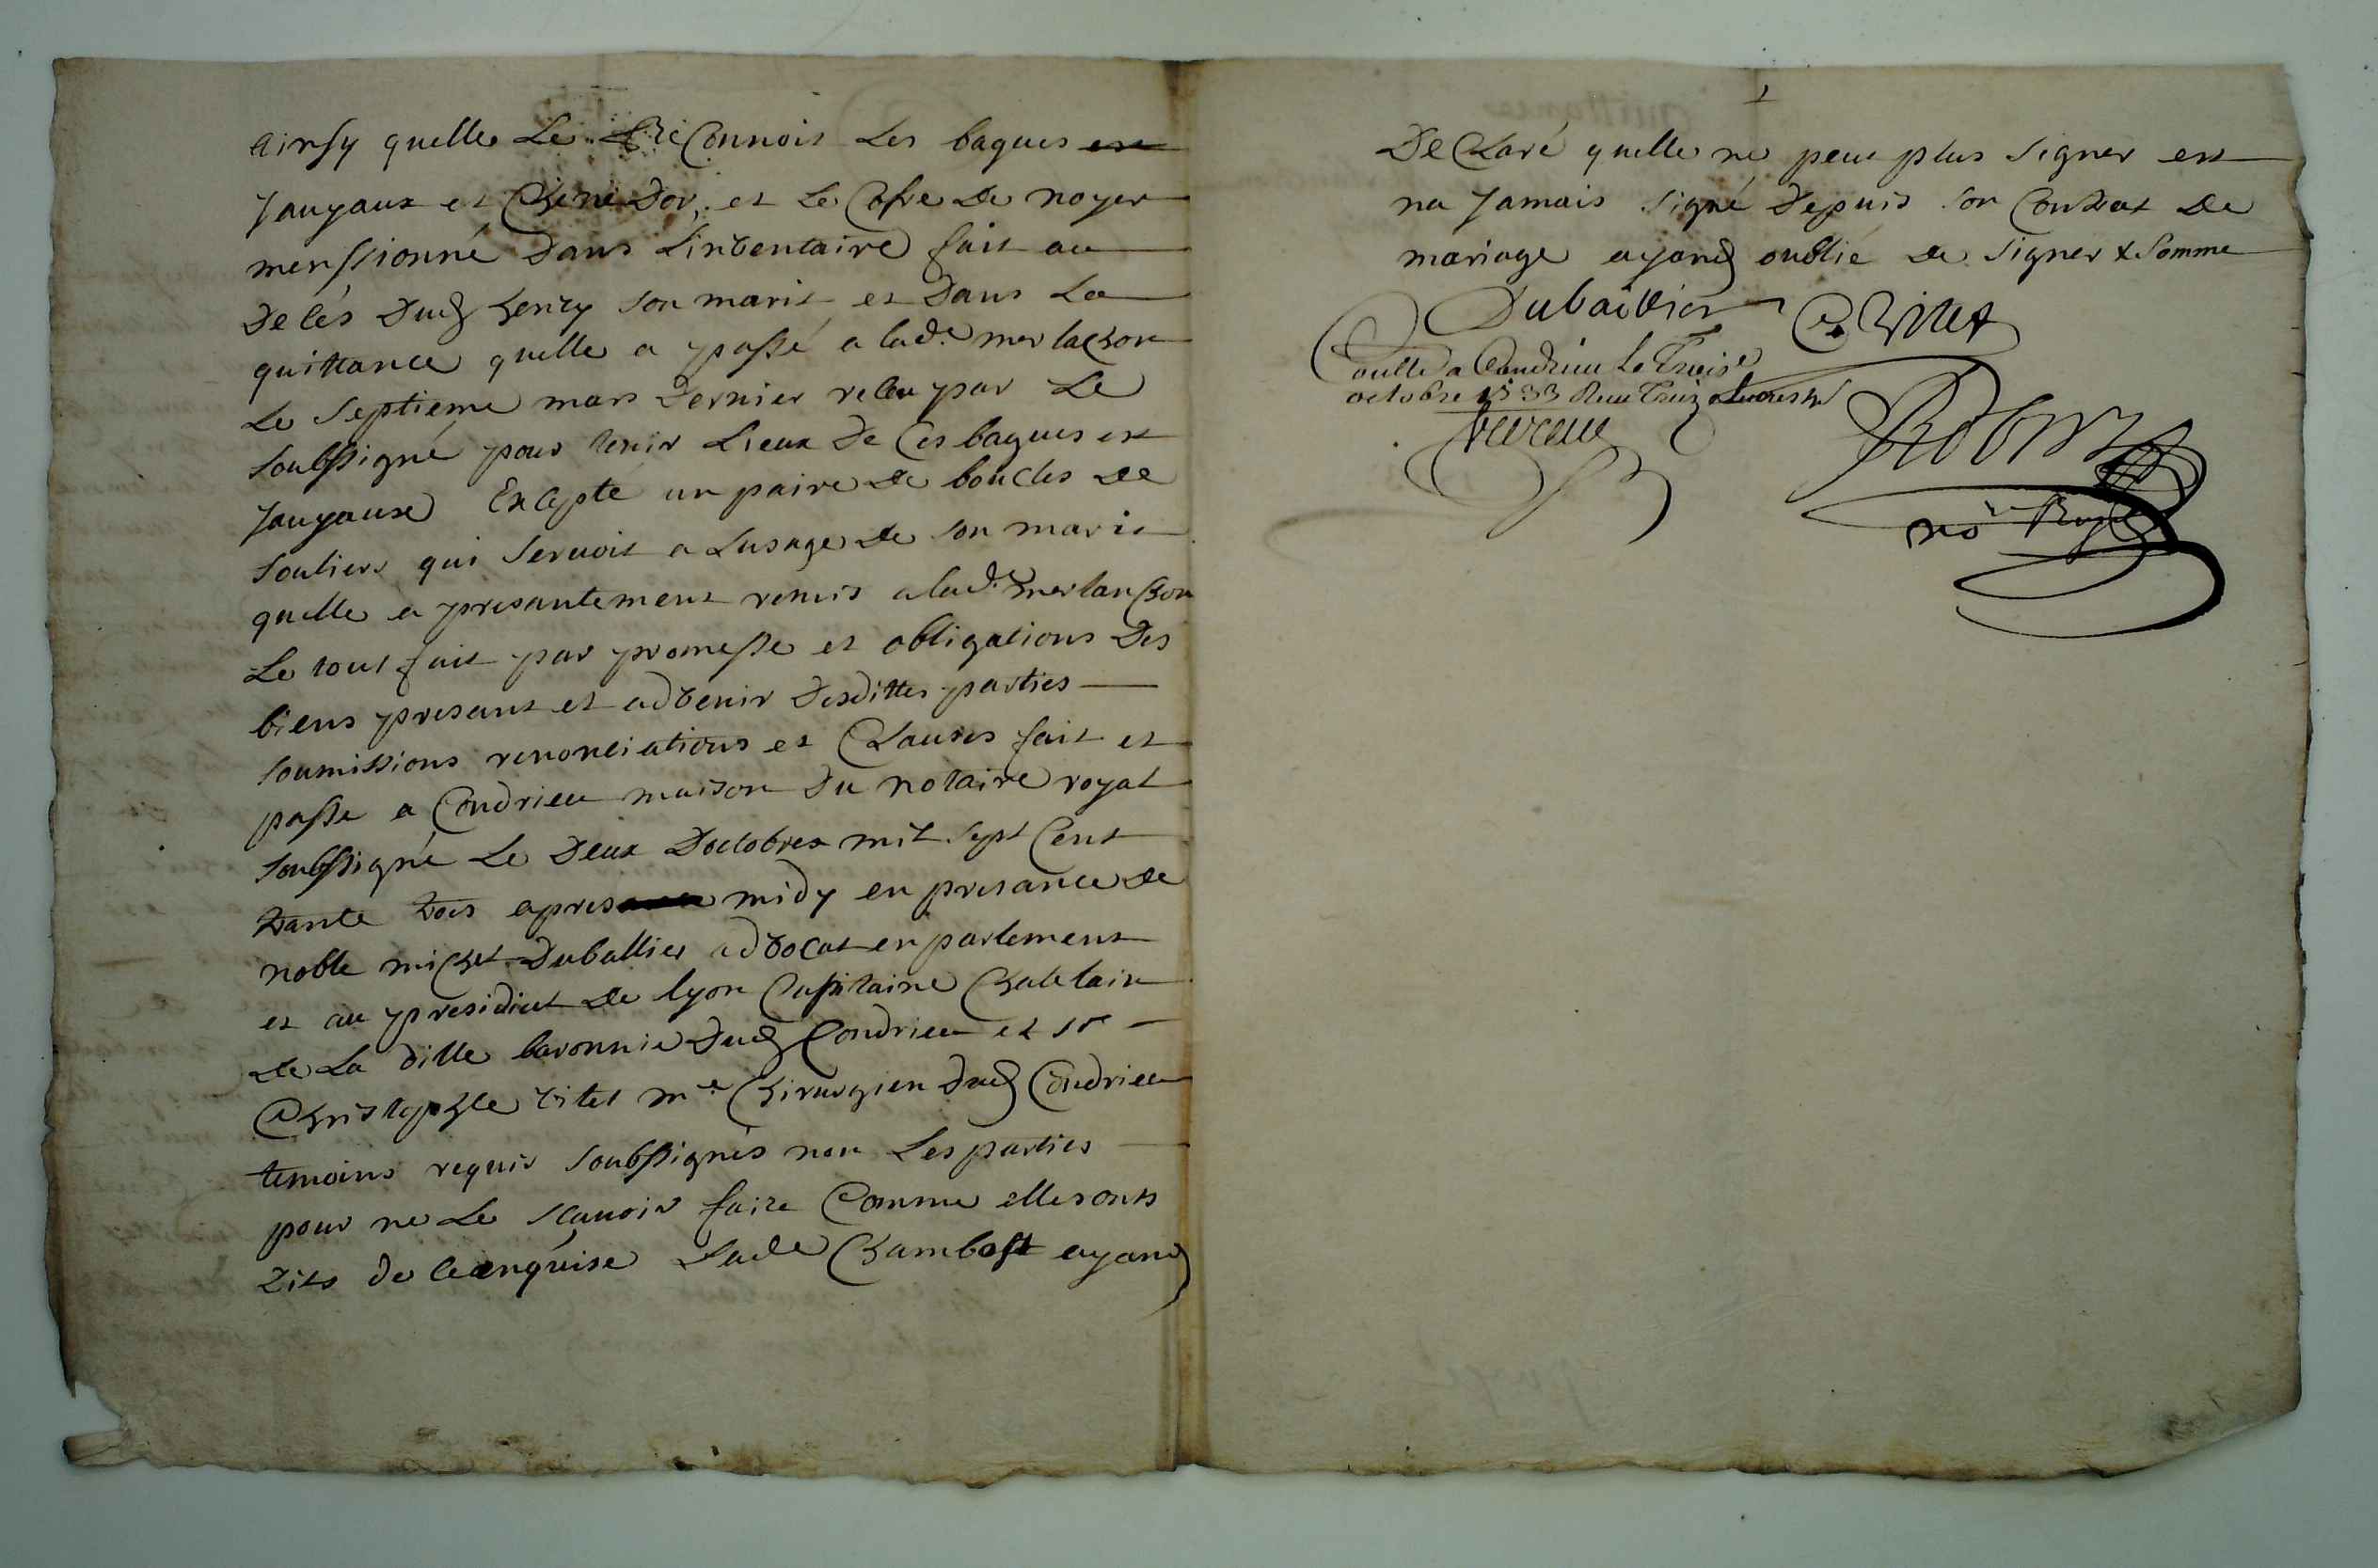 ainsy quelle Le reConnois Les bagues
Jauyaux et Chene Dor, et Le Cofre De noyer
menssionné Dans Linventaire fait au
De cés Dud henry son marit et Dans La
quittance quelle a passé a lad.e merlachon
Le septieme mars Dernier receu par Le
soubssigné pour tenir Lieux De Ces bagues et
Jauyaux Excepté un paire de boucles de
souliers qui servoit a Lusage de son marit
quelle a presantement remis a lad.e merlanchon
Le tout fait par promesse et obligations Des
biens presant et advenir Desdittes parties
soumissions renonciations et Clauses fait et
passe a Condrieu maison Du notaire royal
soubssigné Le Deux Doctobres mil sept Cent
trante trois apres midy en presance de
noble michel Duballier advocat en parlement
et au presidial de lyon Capitaine Chatelain
de La ville baronnie Dud Condrieu et sr
Christophle vitet me Chirurgien Dud Condrieu
temoins requis soubssignés non Les parties
pour ne Le scavoir faire Comme elles onts
dits de ce enquise Lade Chambost ayand
DeClaré quelle ne peut plus signer et
na Jamais signé Depuis son Contrat de
mariage ayand oublié de signer & somme
Duballier C vitet
Contlle a Condrieu le Trois
octobre 1733 Receu Treize
no Roy